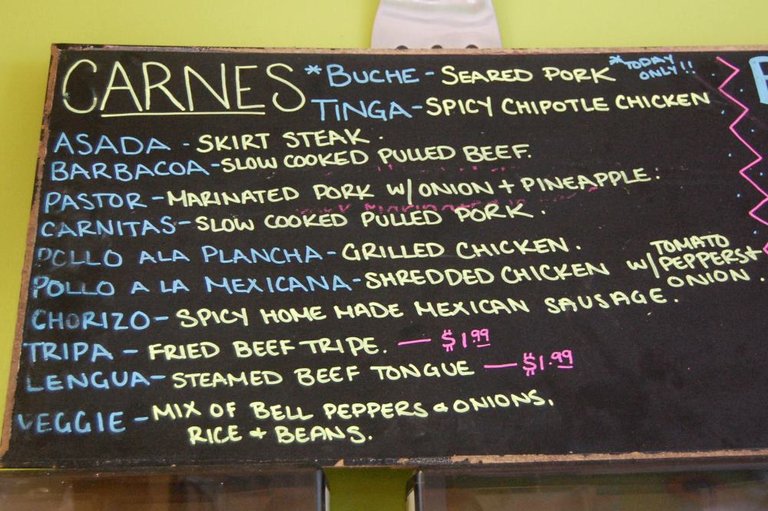 CARNES *BUCHE - SEARED PORK *TODAY ONLY!!
TINGA - SPICY CHIPOTLE CHICKEN
ASADA - SKIRT STEAK.
BARBACOA - SLOW COOKED PULLED BEEF.
PASTOR - MARINATED PORK W/ ONION + PINEAPPLE.
CARNITAS - SLOW COOKED PULLED PORK.
POLLO ALA PLANCHA - GRILLED CHICKEN.
POLLO A LA MEXICANA - SHREDDED CHICKEN W/ TOMATO PEPPERS + ONION.
CHORIZO - SPICY HOME MADE MEXICAN SAUSAGE.
TRIPA - FRIED BEEF TRIPE. — $1.99
LENGUA - STEAMED BEEF TONGUE — $1.99
VEGGIE - MIX OF BELL PEPPERS & ONIONS.
RICE + BEANS.